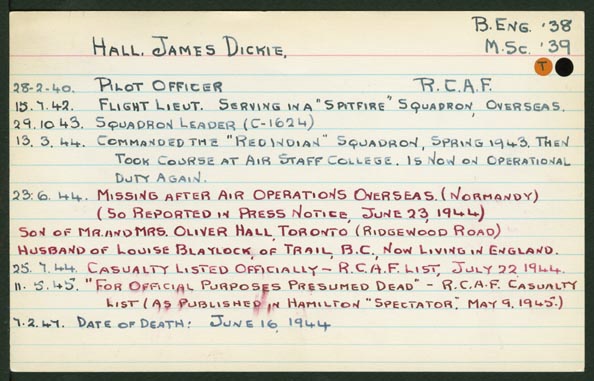 B.Eng. '38
Hall, James Dickie. M.Sc. '39
T
28-2-40. Pilot Officer R.C.A.F.
15.7.42. Flight Lieut. Serving in a "Spitfire" Squadron, Overseas.
29.10.43. Squadron Leader (C-1624)
13.3.44. Commanded the "Red Indian" Squadron, Spring 1943. Then
Took Course at Air Staff College. Is now on Operational
Duty Again.
23.6.44. Missing after Air Operations Overseas. (Normandy)
(So Reported in Press Notice, June 23, 1944)
Son of Mr. and Mrs. Oliver Hall, Toronto (Ridgewood Road)
Husband of Louise Blaylock, of Trail, B.C., Now Living in England.
25.7.44. Casualty Listed Officially – R.C.A.F. List, July 22, 1944.
11.5.45. "For Official Purposes Presumed Dead" – R.C.A.F. Casualty
List (As Published in Hamilton "Spectator", May 9, 1945.)
7.2.47. Date of Death: June 16, 1944